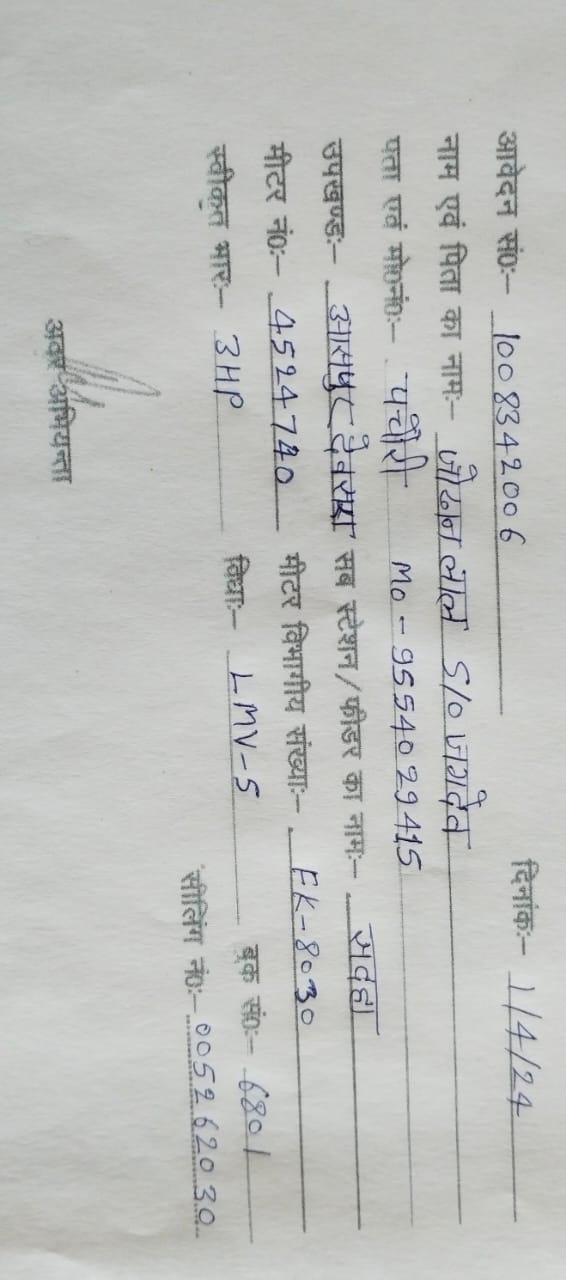 आवेदन सं०:- 1008342006 दिनांक:- 1/4/24
नाम एवं पिता का नाम:- जोखन लाल S/o जगदेव
पता एवं मो०नं०:- पचौरी Mo - 9554029415
उपखण्ड:- आसपुर देवसरा सब स्टेशन/फीडर का नाम:- सदहा
मीटर नं०:- 4524740 मीटर विभागीय संख्या:- EK-8030
स्वीकृत भार:- 3HP विधा:- LMV-5 बुक सं०:- 6801
सीलिंग नं०:- 005262030
अवर अभियन्ता